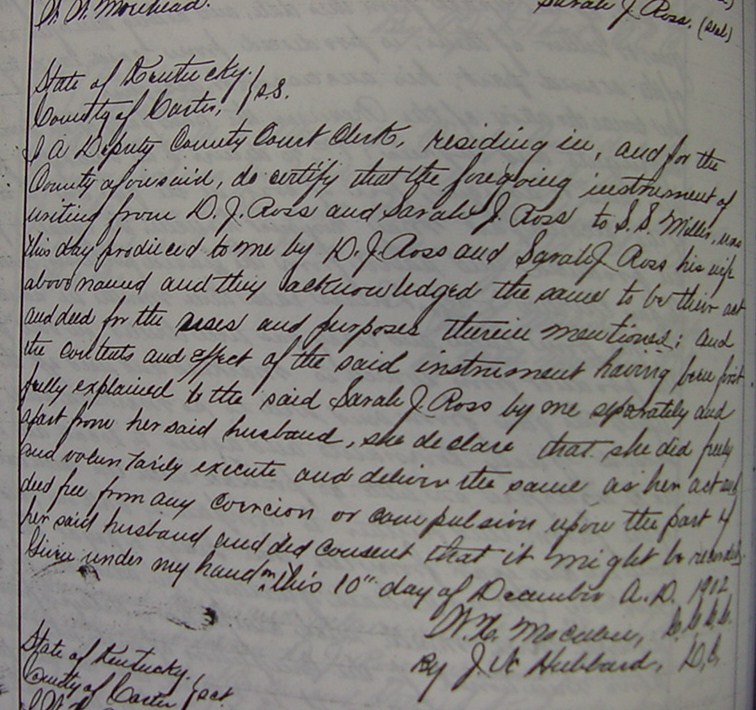 W. W. Morehead. Sarah J. Ross. (Seal)
State of Kentucky.
County of Carter, } S.S.
I A Deputy County Court Clerk, residing in, and for the
County aforesaid, do certify that the foregoing instrument of
writing from D. J. Ross and Sarah J. Ross to S. S. Miller, was
this day produced to me by D. J. Ross and Sarah J. Ross his wife
above named and they acknowledged the same to be their act
and deed for the uses and purposes therein mentioned; and
the contents and effect of the said instrument having been first
fully explained to the said Sarah J. Ross by me separately and
apart from her said husband, she declare that she did freely
and voluntarily execute and deliver the same as her act and
deed free from any coercion or compulsion upon the part of
her said husband and did consent that it might be recorded.
Given under my hand this 10" day of December A.D. 1902
C.C.C.C.
By J. W. Hubbard, D.C.
State of Kentucky.
County of Carter } sct.